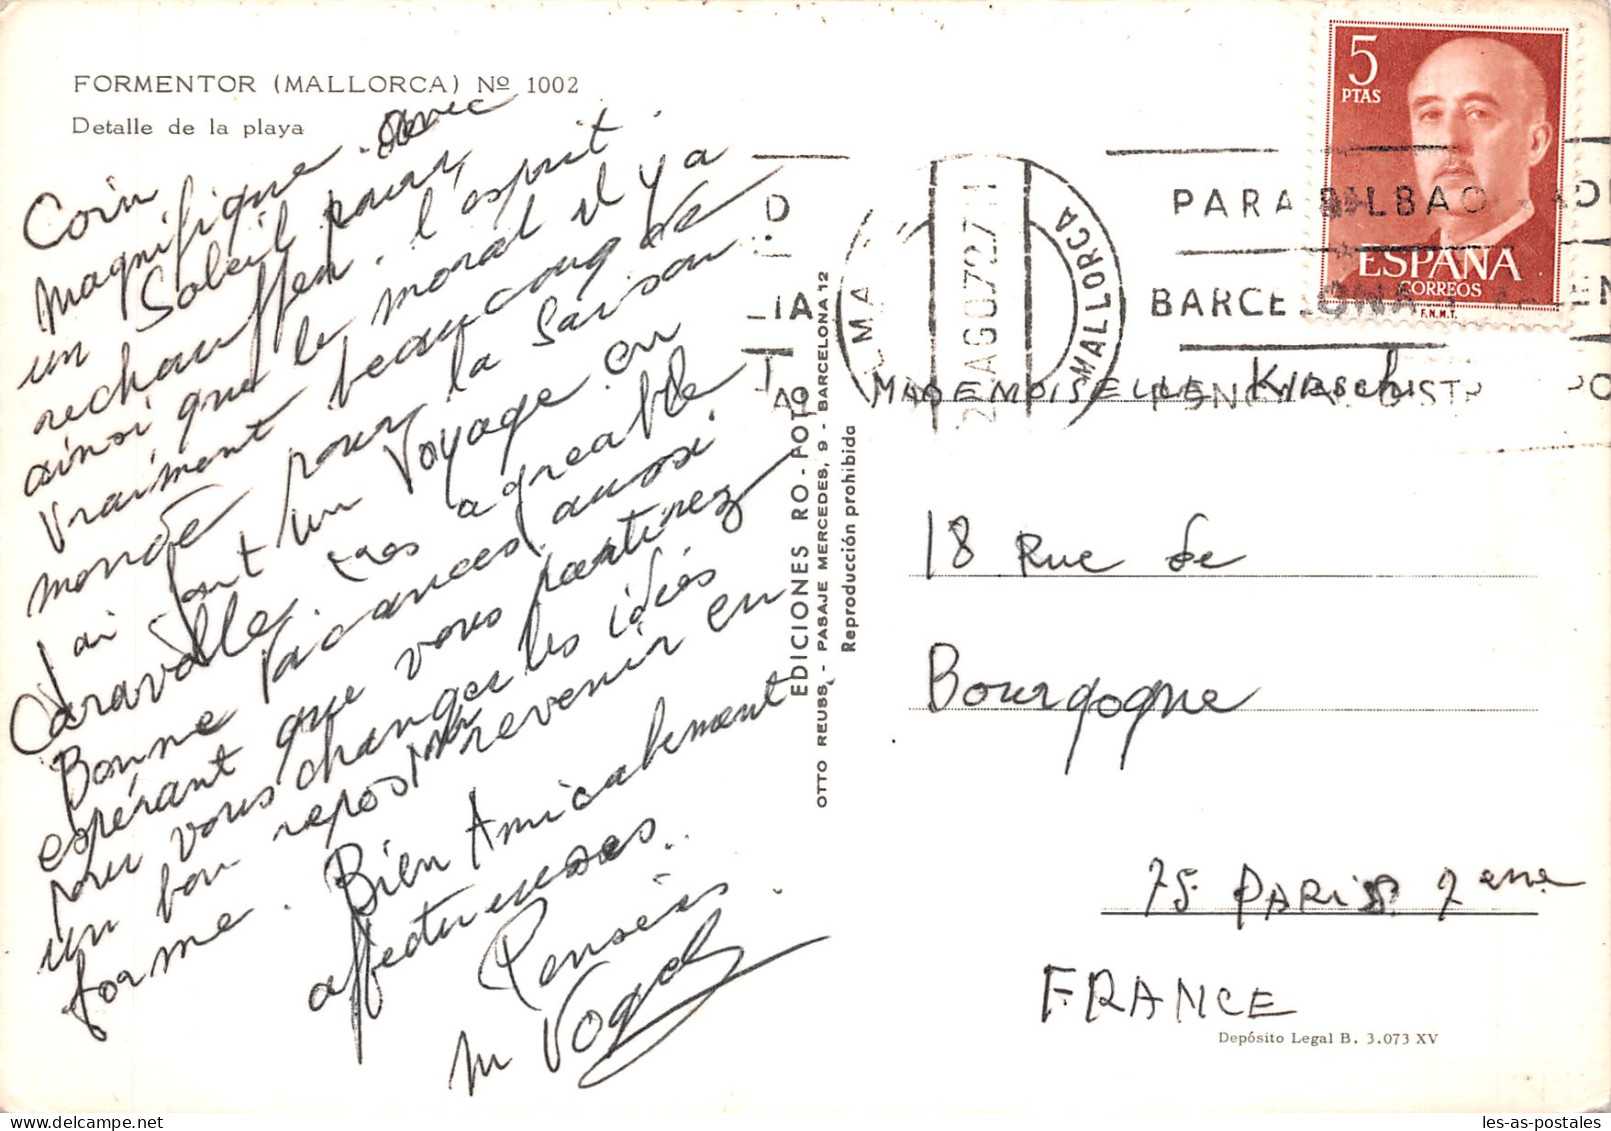 FORMENTOR (MALLORCA) Nº 1002
Detalle de la playa
Coin magnifique avec
un Soleil pour
rechauffer l'esprit
ainsi que le moral il y a
vraiment beaucoup de
monde pour la saison
J'ai fait un Voyage en
Caravelle très agreable
Bonne vacances aussi
espérant que vous partirez
pour vous changer les idées
un bon repos pour revenir en
forme. Bien Amicalement
affectueuses
Pensées.
M Vogel
EDICIONES RO-FOTO
OTTO REUSS, - PASAJE MERCEDES, 9 - BARCELONA 12
Reproducción prohibida
5
PTAS
ESPAÑA
CORREOS
F.N.M.T.
PARA BILBAO
BARCELONA
MALLORCA
AGO 72
MADEMOISELLE Kirsch
18 Rue de
Bourgogne
75 PARIS 7ème
FRANCE
Depósito Legal B. 3.073 XV
les-as-postales